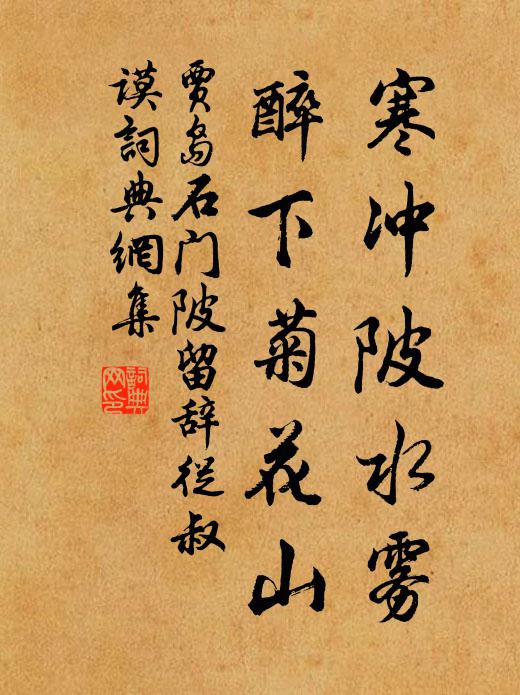 寒冲陂水雾
醉下菊花山
贾岛石门陂留辞従叔
谟詞典網集
詞典
网印